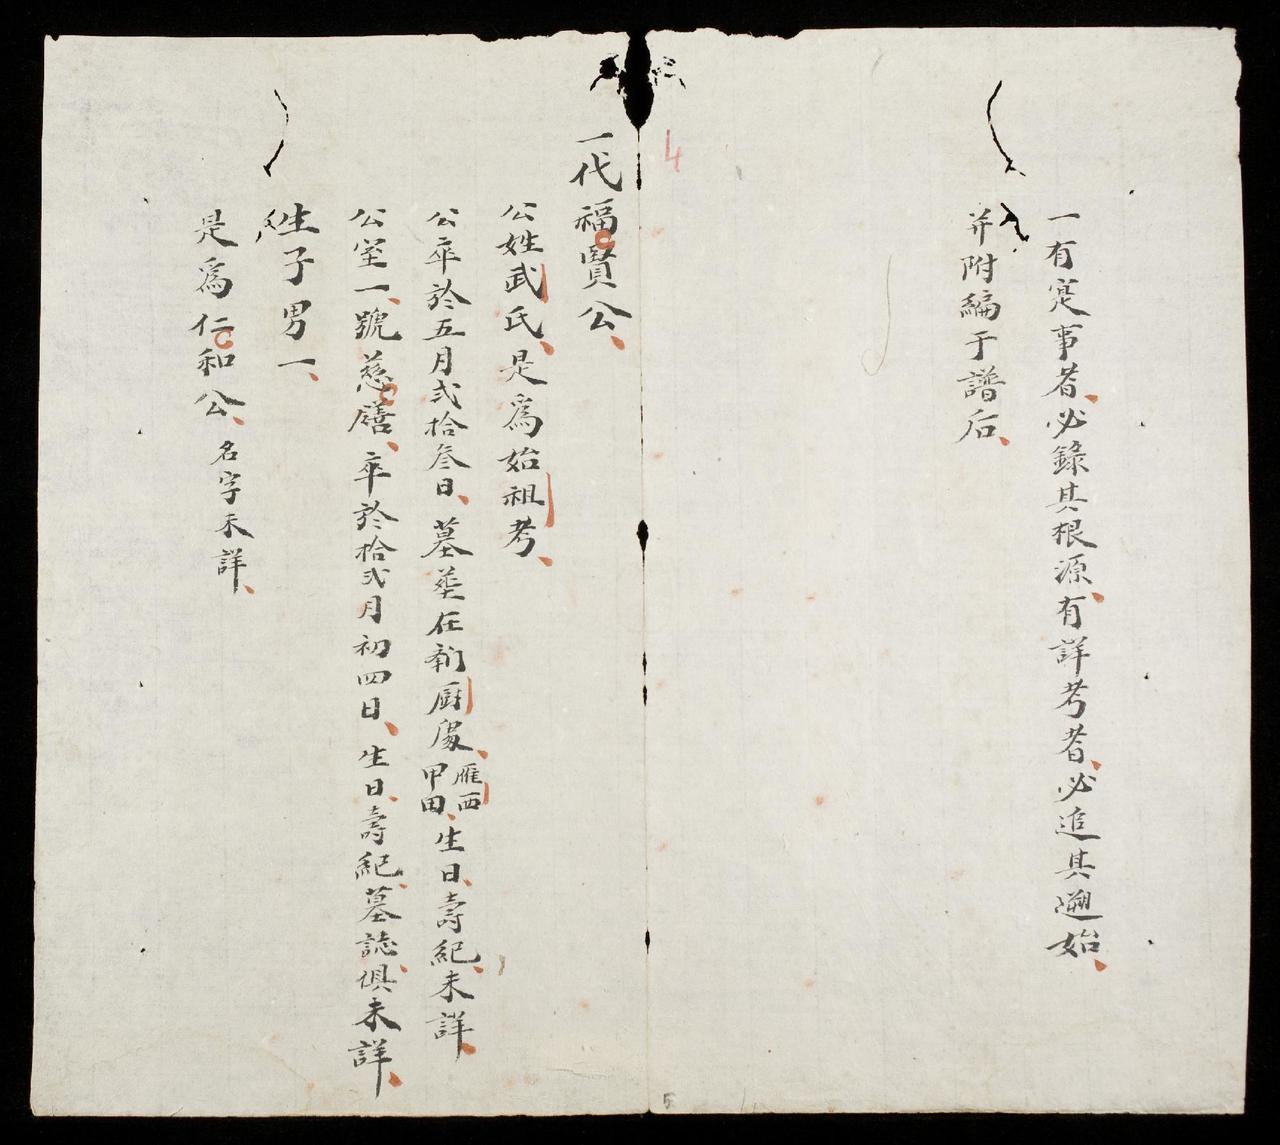 一有寔事者必錄其根源有詳考者必追其遡始
并附編于譜后
4
一代福賢公
公姓武氏是爲始祖考
公卒於五月弍拾叄日墓葬在𨔍厨處雁西甲田生日壽紀未詳
公室一號慈膳卒於拾弍月初四日生日壽紀墓誌俱未詳
生子男一
是爲仁和公名字未詳
5